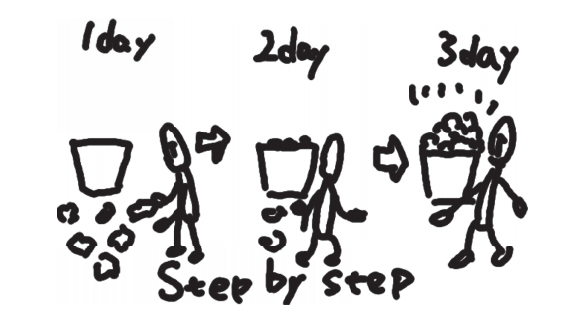 1day
2day
3day
Step by step